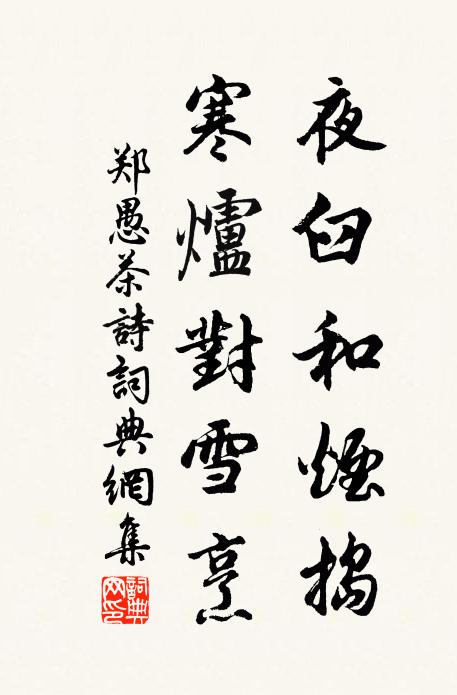 夜臼和煙搗
寒爐對雪烹
郑愚茶詩詞典網集
詞典网印